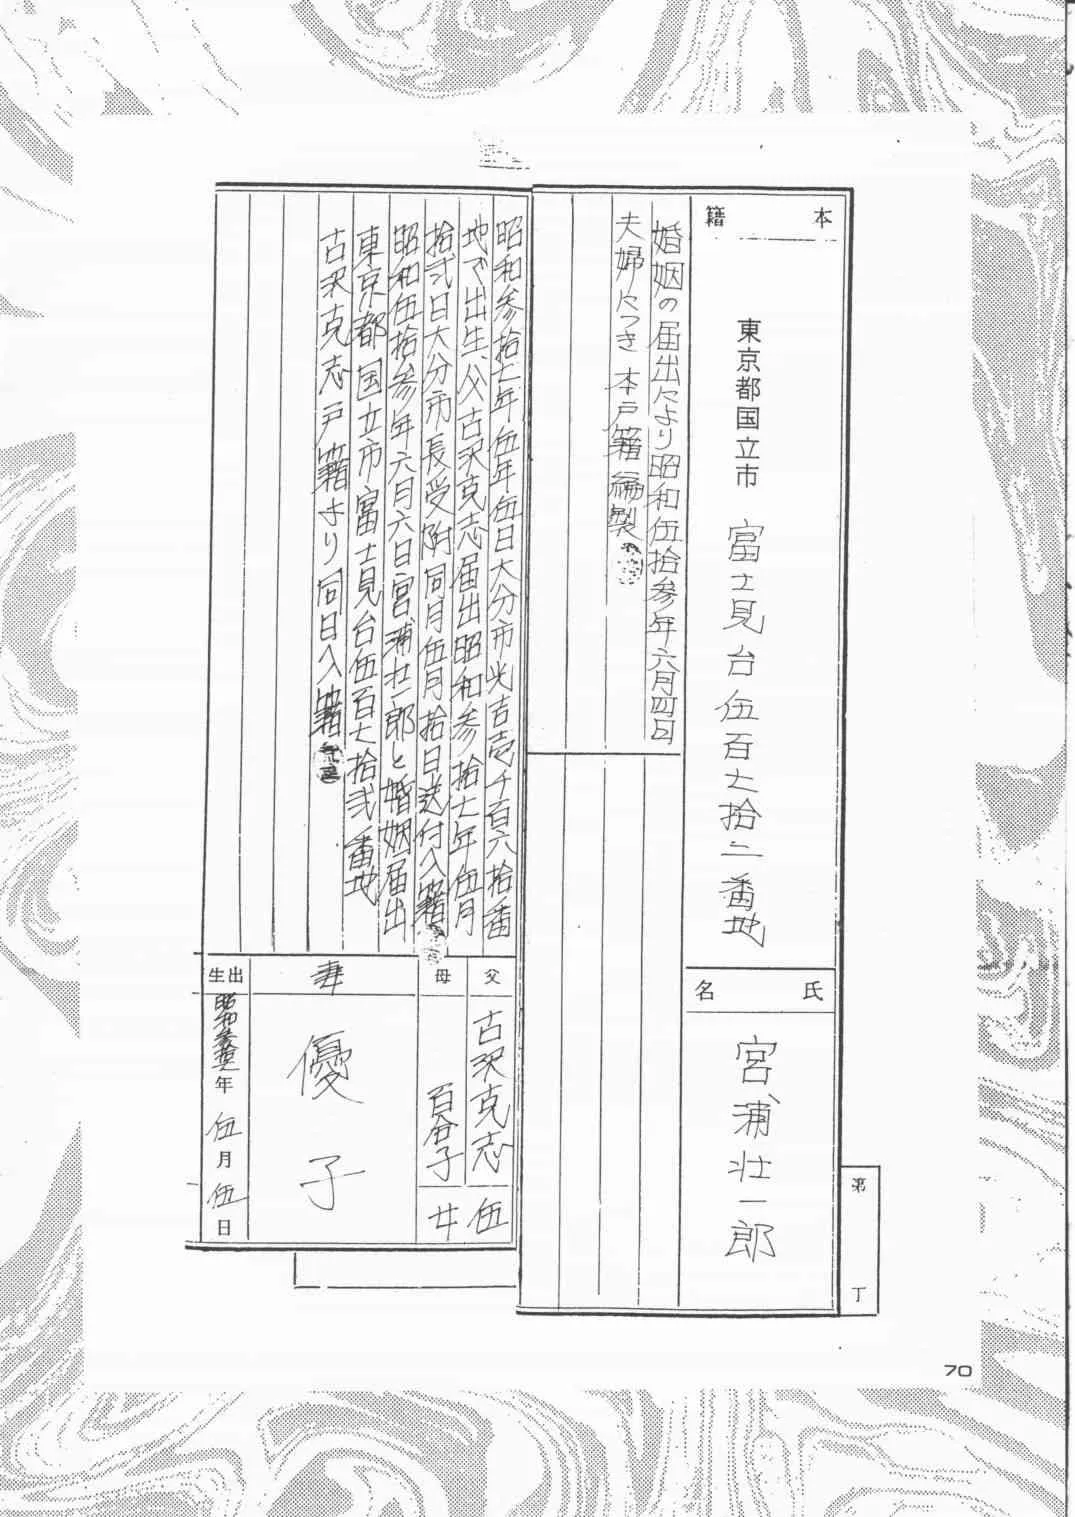 本籍
東京都国立市 富士見台伍百七拾二番地
氏名
宮浦壮一郎
婚姻の届出により昭和伍拾参年六月四日
夫婦につき本戸籍編製
第
丁
昭和参拾七年伍年伍日大分市光吉壱千百六拾番
地で出生父古沢克志届出昭和参拾七年伍月
拾弐日大分市長受附同月伍月拾日送付入籍
昭和伍拾参年六月六日宮浦壮一郎と婚姻届出
東京都国立市富士見台伍百七拾弐番地
古沢克志戸籍より同日入籍
父
古沢克志
伍
母
百合子
女
妻
優子
出生
昭和参拾七年
伍月
伍日
70